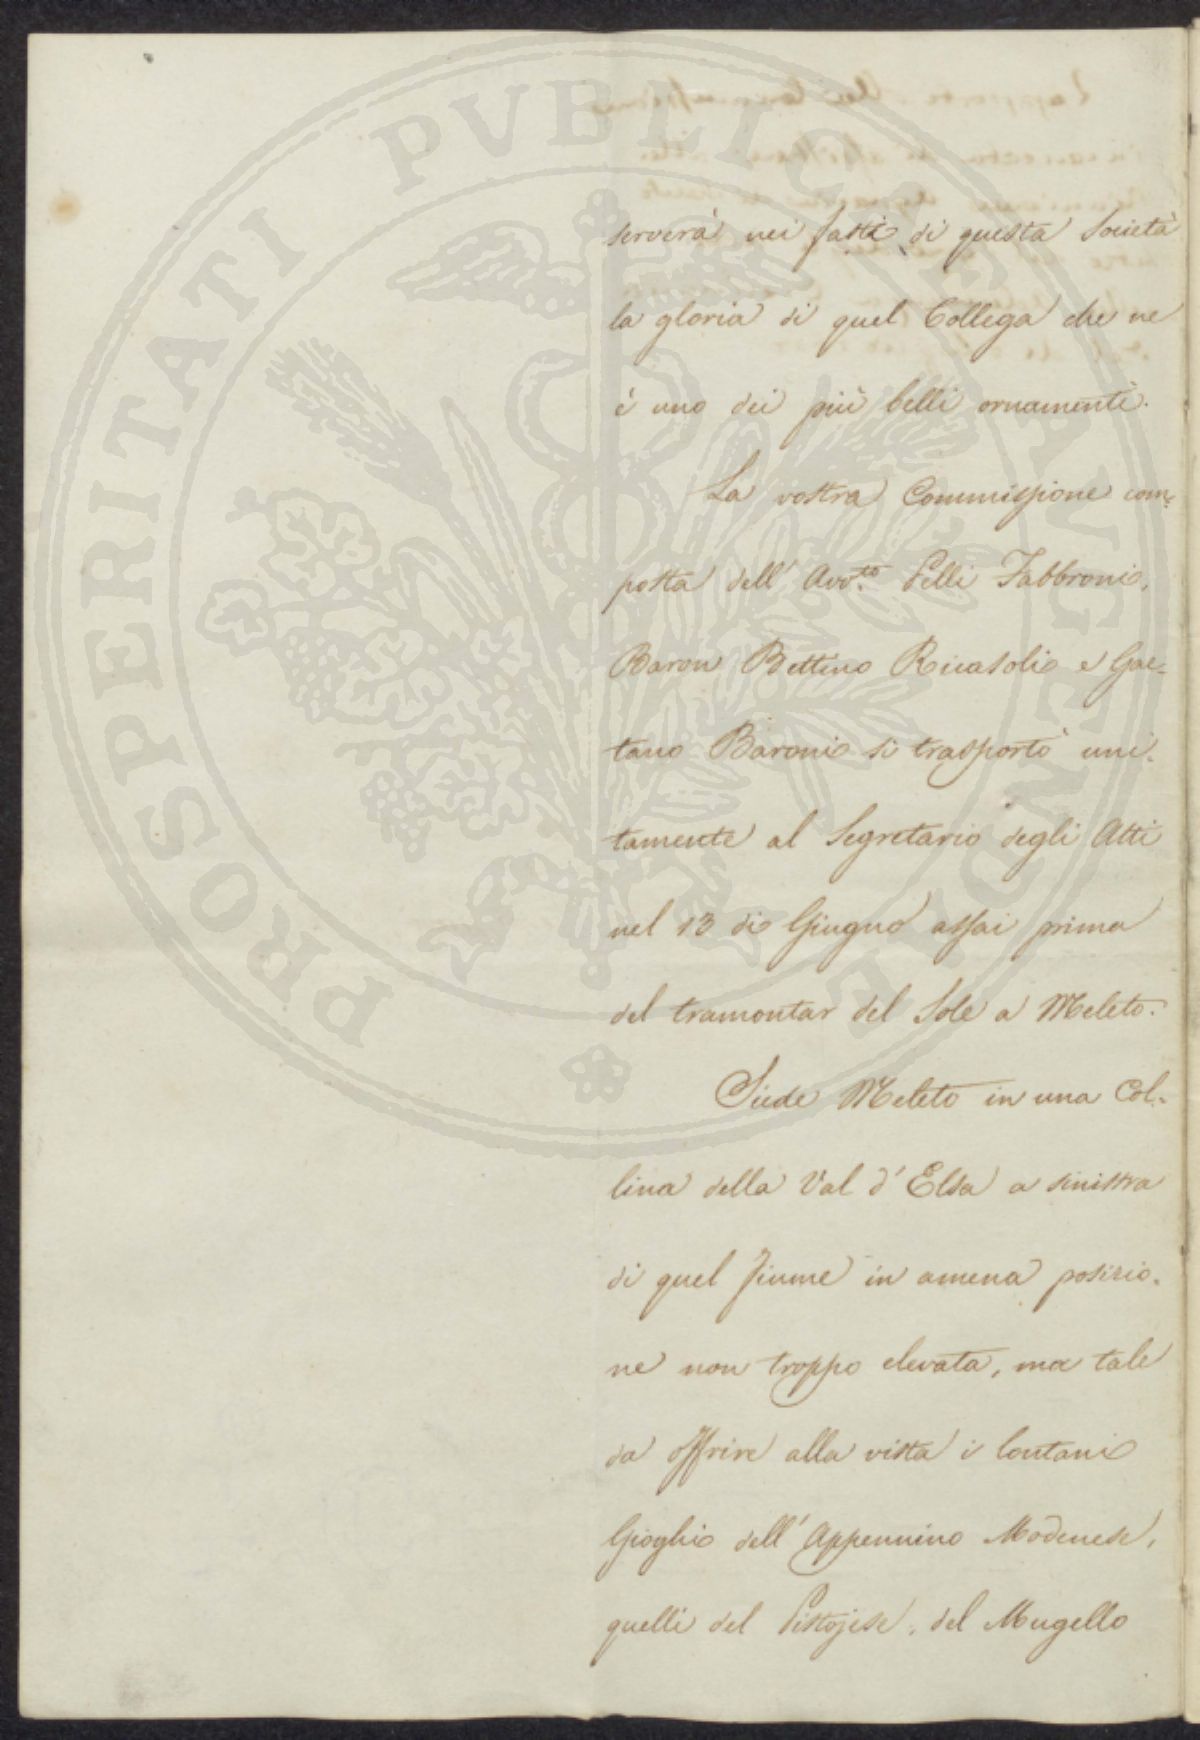 PROSPERITATI PUBLICAE AUGENDAE
serverà nei fasti di questa Società
la gloria di quel Collega che ne
è uno dei più belli ornamenti.
La vostra Commissione com=
posta dell' Avv.to Pelli Fabbroni,
Baron Bettino Ricasoli e Gae=
tano Baroni si trasportò uni=
tamente al Segretario degli Atti
nel 13 di Giugno assai prima
del tramontar del Sole a Meleto.
Siede Meleto in una Col=
lina della Val d' Elsa a sinistra
di quel fiume in amena posizio=
ne non troppo elevata, ma tale
da offrire alla vista i lontani
Gioghi dell' Appennino Modenese,
quelli del Pistojese, del Mugello